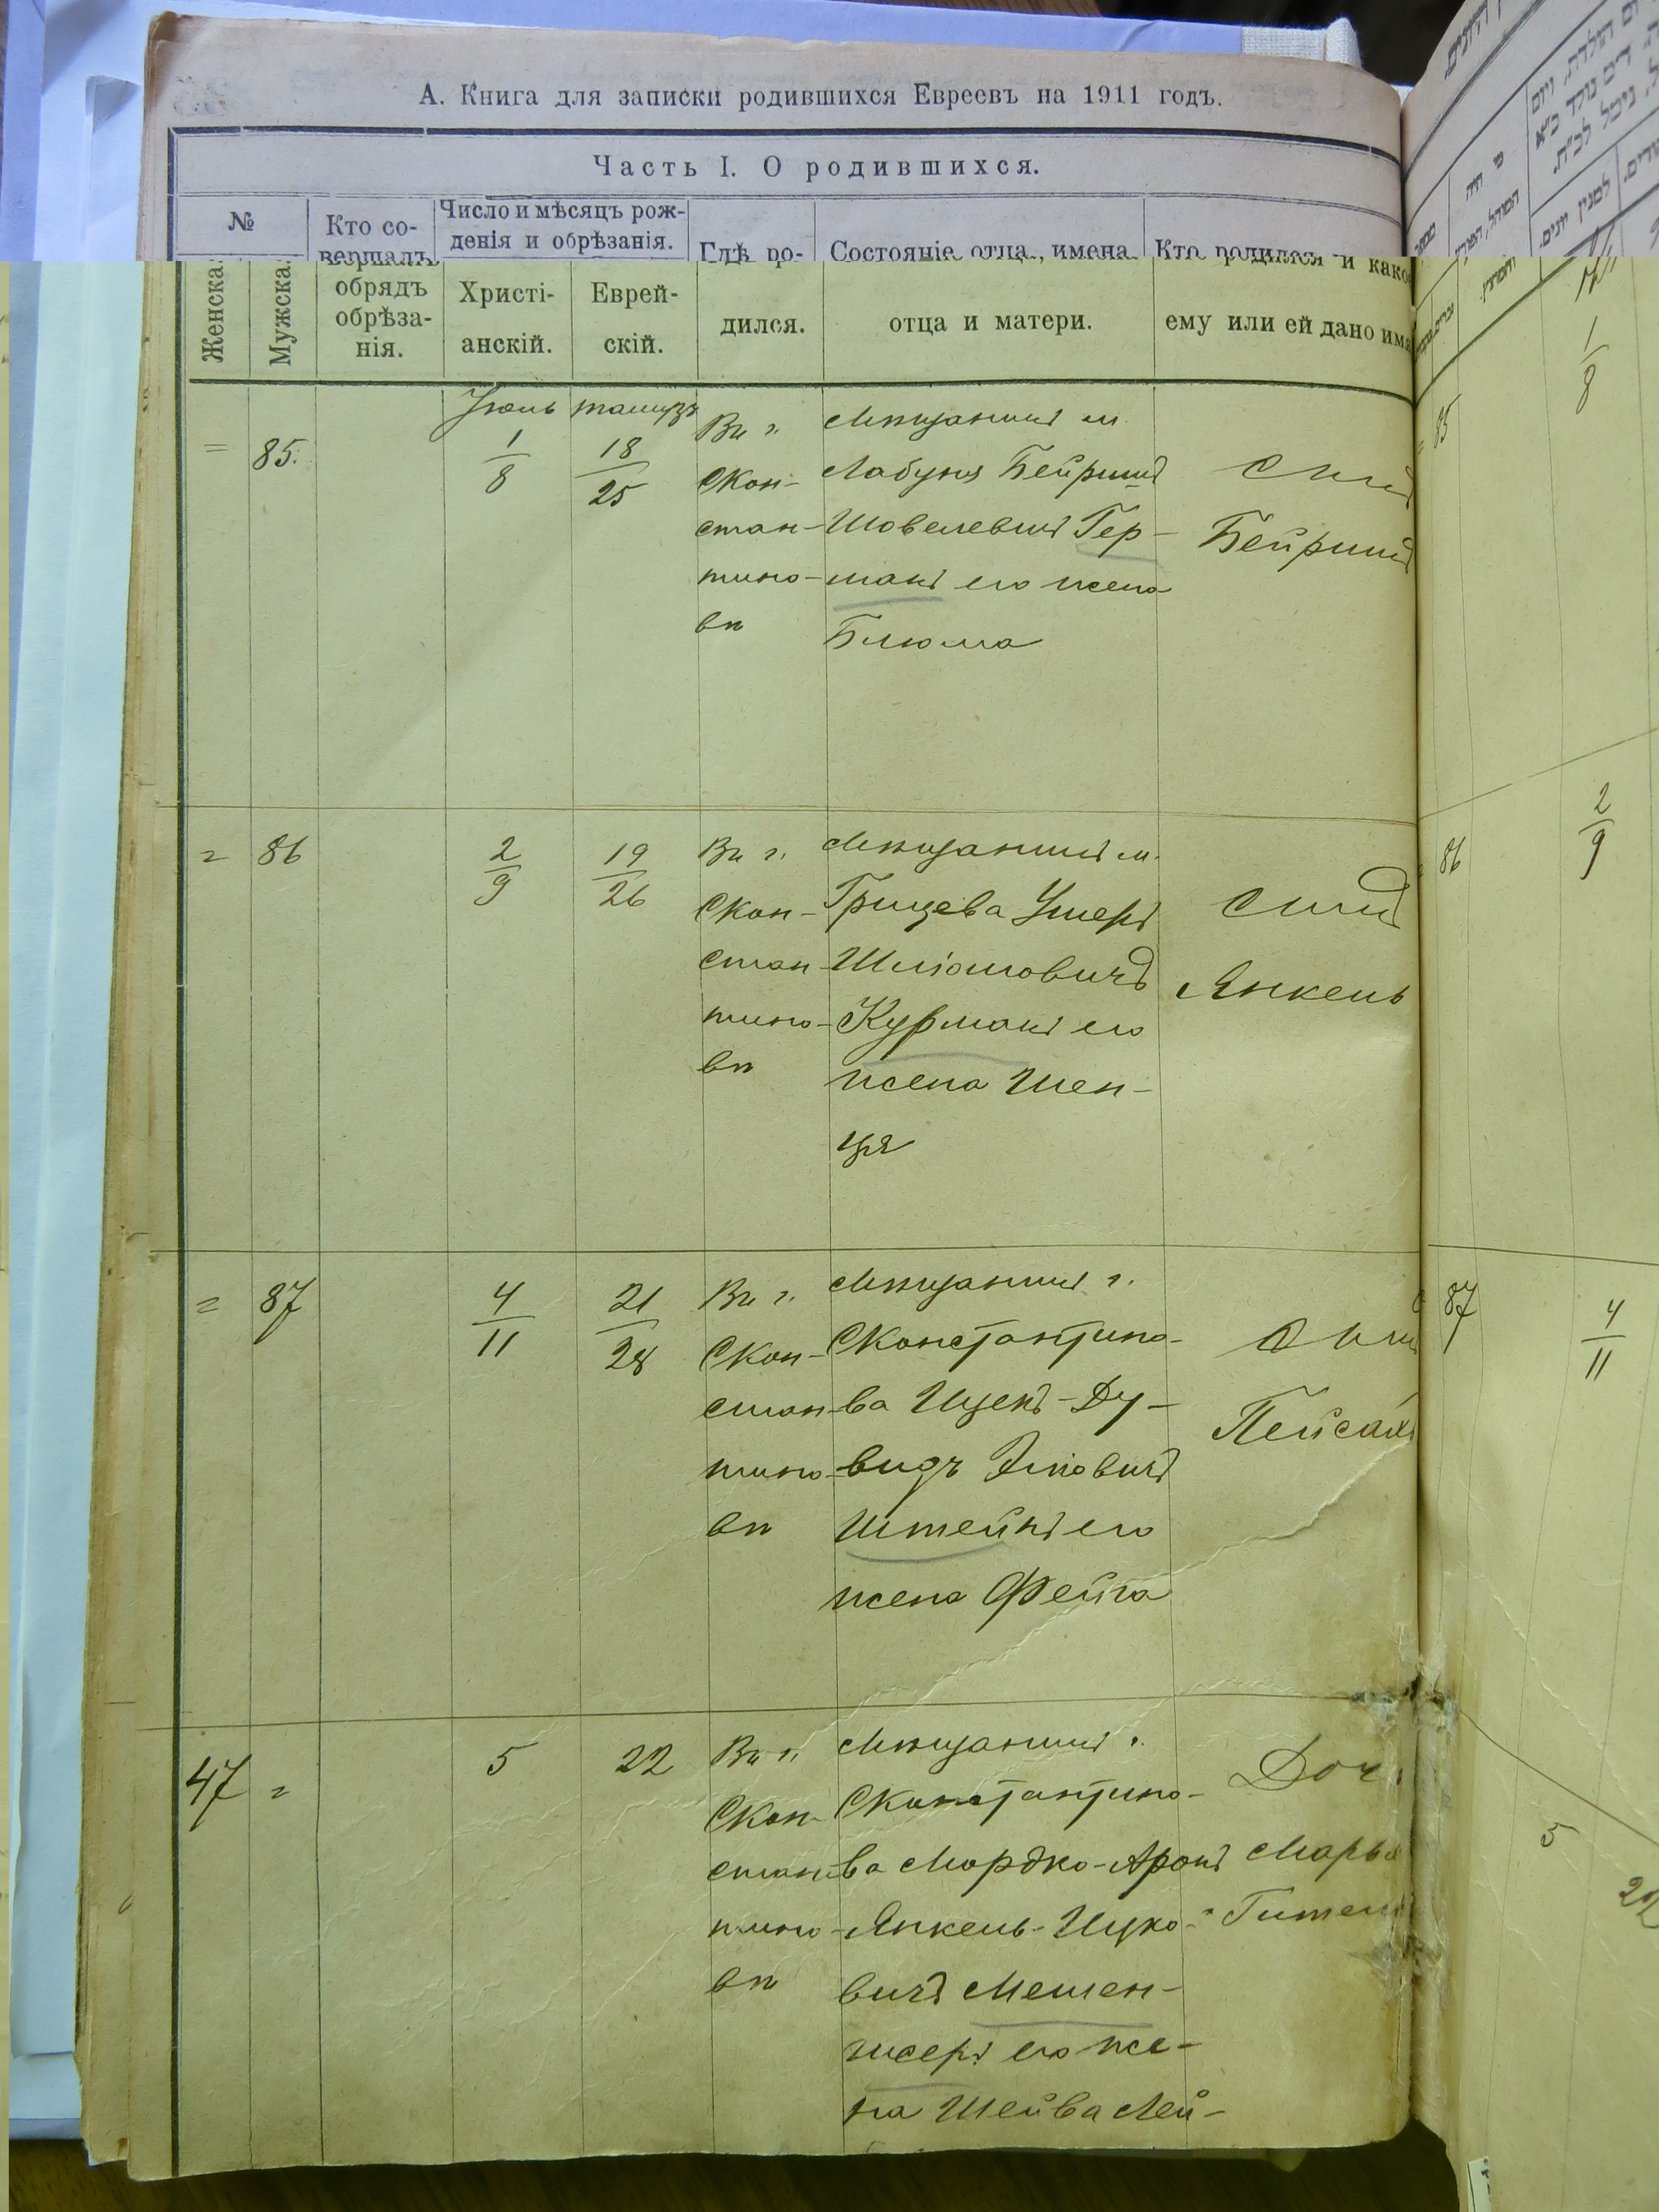 А. Книга для записки родившихся Евреевъ на 1911 годъ.
Часть I. О родившихся.
№
Женска.
Мужска.
Кто со-
вершалъ
обрядъ
обрѣза-
нія.
Число и мѣсяцъ рож-
денія и обрѣзанія.
Христі-
анскій.
Еврей-
скій.
Гдѣ ро-
дился.
Состояніе отца, имена
отца и матери.
Кто родился и како
ему или ей дано имя
=
85.
Іюль
1
8
тамузъ
18
25
Въ г.
Скон-
стан-
тино-
вѣ
Мѣщанинъ м.
Лабуня Бейришъ
Шовелевичъ Гер-
манъ его жена
Блюма
Сынъ
Бейришъ
=
86
2
9
19
26
Въ г.
Скон-
стан-
тино-
вѣ
Мѣщанинъ м.
Грицева Ушеръ
Шліомовичъ
Курманъ его
жена Шен-
ця
Сынъ
Янкель
=
87
4
11
21
28
Въ г.
Скон-
стан-
тино-
вѣ
Мѣщанинъ г.
Сконстантино-
ва Ицекъ-Ду-
видъ Эліовичъ
Штейнъ его
жена Фейга
Сынъ
Пейсахъ
47
=
5
22
Въ г.
Скон-
стан-
тино-
вѣ
Мѣщанинъ г.
Сконстантино-
ва Мордко-Аронъ
Янкель-Ицко-
вичъ Мешен-
жеръ его же-
на Шейва Лей-
Дочь
Марья
Гитель
85
1
8
86
2
9
87
4
11
5
22